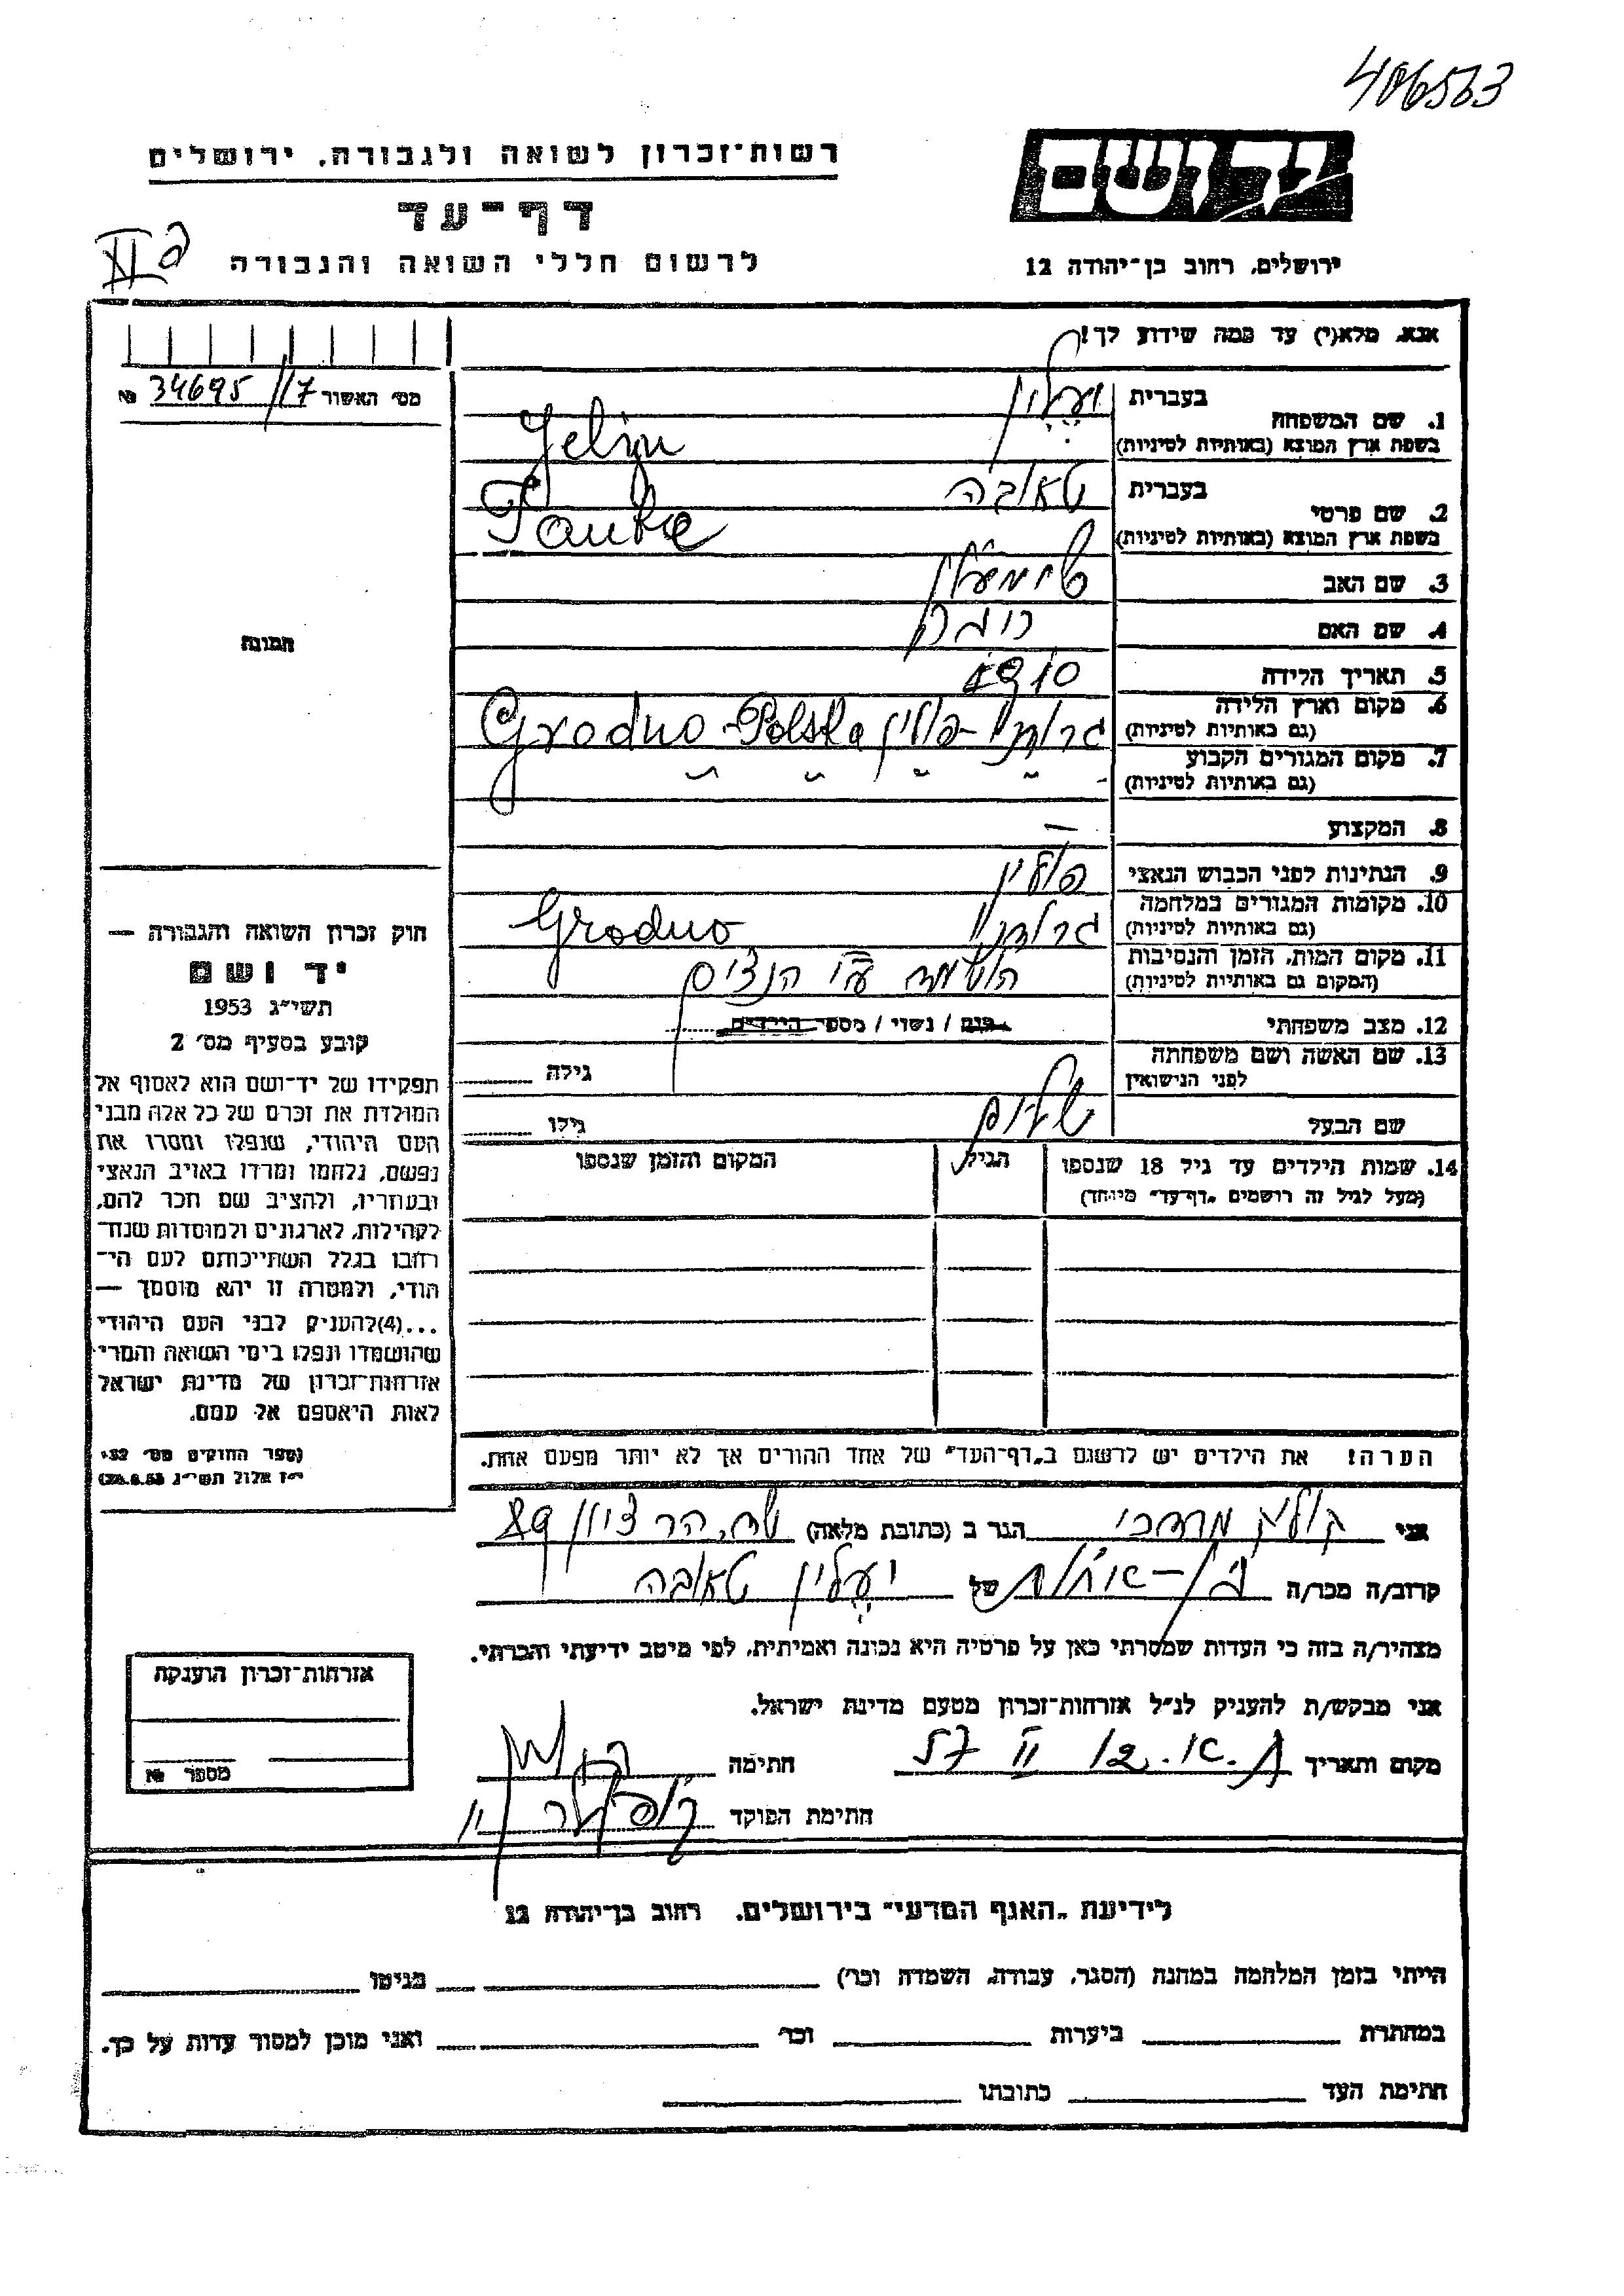 406563
רשות־זכרון לשואה ולגבורה, ירושלים
יד ושם
דף־עד
לרשום חללי השואה והגבורה
ירושלים, רחוב בן־יהודה 12
אנא, מלא(י) עד כמה שידוע לך!
מס׳ האשור 34695/17 №
1. שם המשפחה
בעברית יעלין
בשפת ארץ המוצא (באותיות לטיניות) Jelin
2. שם פרטי
בעברית טאובה
בשפת ארץ המוצא (באותיות לטיניות) Taube
3. שם האב
4. שם האם
5. תאריך הלידה 1910
תמונה
6. מקום וארץ הלידה
(גם באותיות לטיניות) גרודנו - פולין Grodno - Polska
7. מקום המגורים הקבוע
(גם באותיות לטיניות) " " " "
8. המקצוע —
9. הנתינות לפני הכבוש הנאצי פולין
10. מקומות המגורים במלחמה
(גם באותיות לטיניות) גרודנו Grodno
11. מקום המות, הזמן והנסיבות
(המקום גם באותיות לטיניות) הושמד ע״י הנצים
12. מצב משפחתי רווק / נשוי / מספר הילדים
13. שם האשה ושם משפחתה
לפני הנישואין
גילה
שם הבעל שלום
גילו
14. שמות הילדים עד גיל 18 שנספו
(מעל לגיל זה רושמים „דף־עד״ מיוחד)
הגיל
המקום והזמן שנספו
הערה! את הילדים יש לרשום ב„דף־העד״ של אחד ההורים אך לא יותר מפעם אחת.
חוק זכרון השואה והגבורה —
יד ושם
תשי״ג 1953
קובע בסעיף מס׳ 2
תפקידו של יד־ושם הוא לאסוף אל
המולדת את זכרם של כל אלה מבני
העם היהודי, שנפלו ומסרו את
נפשם, נלחמו ומרדו באויב הנאצי
ובעוזריו, ולהציב שם וזכר להם,
לקהילות, לארגונים ולמוסדות שנח־
רבו בגלל השתייכותם לעם הי־
הודי, ולמטרה זו יהא מוסמך —
...(4) להעניק לבני העם היהודי
שהושמדו ונפלו בימי השואה והמרי
אזרחות־זכרון של מדינת ישראל
לאות היאספם אל עמם.
(ספר החוקים מס׳ 132
י״ז אלול תשי״ג 28.8.53)
אני מרדכי הגר ב (כתובת מלאה) הר ציון 89
קרוב/ה מכר/ה בן-אחות של יעלין טאובה
מצהיר/ה בזה כי העדות שמסרתי כאן על פרטיה היא נכונה ואמיתית, לפי מיטב ידיעתי והכרתי.
אני מבקש/ת להעניק לנ״ל אזרחות־זכרון מטעם מדינת ישראל.
מקום ותאריך ת.א. 12 II 57 חתימה
חתימת הפוקד
אזרחות־זכרון הוענקה
מספר №
לידיעת „האגף המדעי״ בירושלים, רחוב בן־יהודה 12
הייתי בזמן המלחמה במחנה (הסגר, עבודה, השמדה וכו׳) בגיטו
במחתרת ביערות וכו׳ ואני מוכן למסור עדות על כך.
חתימת העד כתובתו